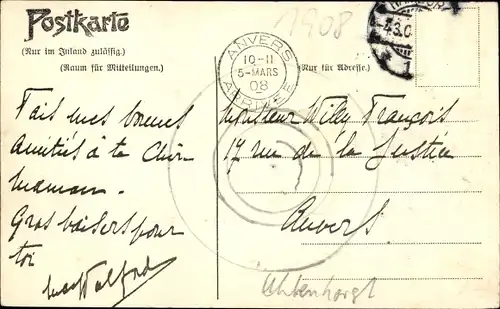 Postkarte
(Nur im Inland zulässig.)
(Raum für Mitteilungen.)
(Nur für Adresse.)
1908
ANVERS
10-11
5-MARS
08
ARRIVEE
1
Fais mes bonnes
Amitiés à ta Chère
maman.
Gros baisers pour
toi
Monsieur Willy François
17 rue de la Justice
Anvers
Uhlenhorst